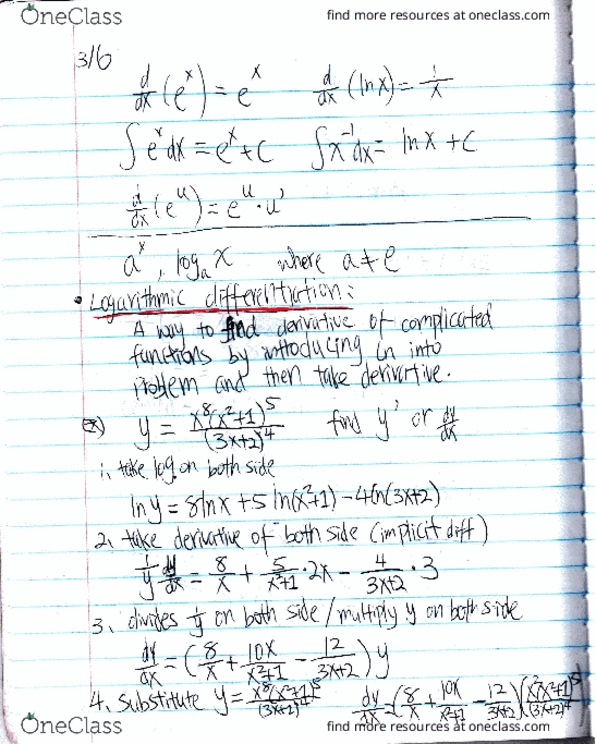 OneClass
find more resources at oneclass.com
3/6
d/dx (e^x) = e^x    d/dx (ln x) = 1/x
∫ e^x dx = e^x + C    ∫ x^-1 dx = ln x + C
d/dx (e^u) = e^u · u'
a^x, log_a x where a ≠ e
• Logarithmic differentiation:
A way to find derivative of complicated
functions by introducing ln into
problem and then take derivative.
Ex) y = x^8(x^2+1)^5/(3x+2)^4 find y' or dy/dx
1. take log on both side
ln y = 8 ln x + 5 ln(x^2+1) - 4 ln(3x+2)
2. take derivative of both side (implicit diff)
1/y dy/dx = 8/x + 5/(x^2+1) · 2x - 4/(3x+2) · 3
3. divides 1/y on both side / multiply y on both side
dy/dx = (8/x + 10x/(x^2+1) - 12/(3x+2)) y
4. Substitute y = x^8(x^2+1)^5/(3x+2)^4    dy/dx = (8/x + 10x/(x^2+1) - 12/(3x+2))(x^8(x^2+1)^5/(3x+2)^4)
OneClass
find more resources at oneclass.com